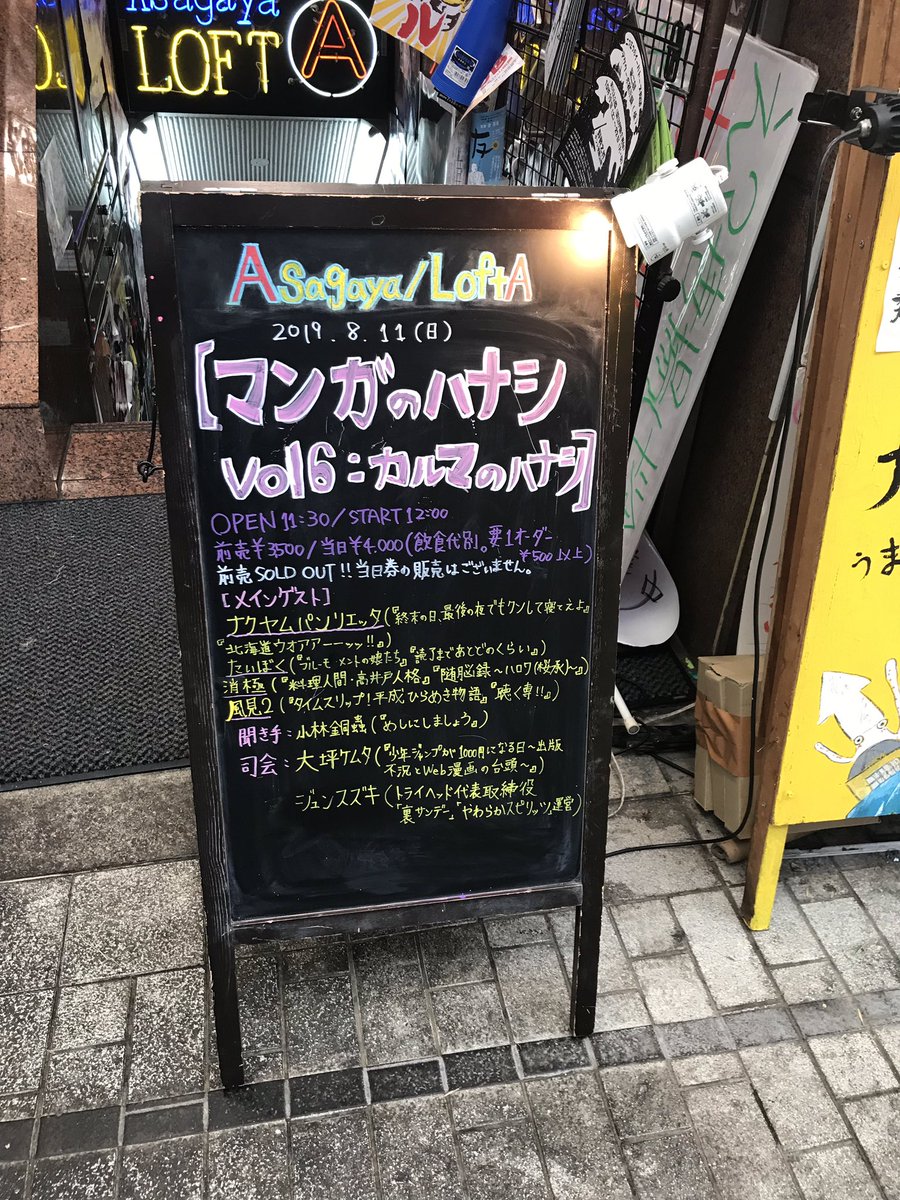 Asagaya
LOFT A
ル
Asagaya/LoftA
2019.8.11(日)
[マンガのハナシ
vol6:カルマのハナシ]
OPEN 11:30/START 12:00
前売¥3500/当日¥4.000(飲食代別。要1オーダー
¥500以上)
前売SOLD OUT!!当日券の販売はございません。
[メインゲスト]
ナクヤムパンリエッタ(『終末の日、最後の夜でもクソして寝てえよ』
『北海道ウオアアーーッッ!!』)
たいぼく(『ブルーモーメントの娘たち』『読了まであとどのくらい』)
消極(『料理人間・高井戸人格』『随脳録〜ハロワ(桜承)〜』)
風見2(『タイムスリップ!平成ひらめき物語』『聴く専!!』)
聞き手:小林銅蟲(『めしにしましょう』)
司会:大坪ケムタ(『少年ジャンプが1000円になる日〜出版
不況とWeb漫画の台頭〜』)
ジュンスズキ(トライヘッド代表取締役
「裏サンデー」「やわらかスピリッツ」運営)
うま